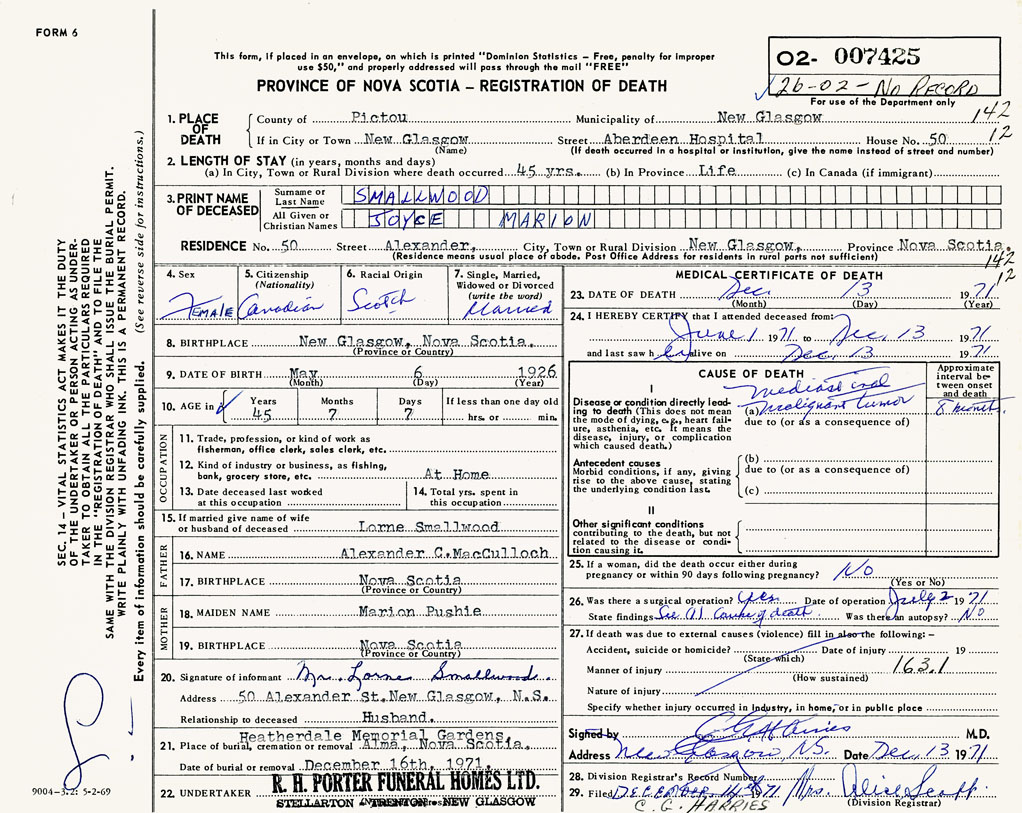 FORM 6
This form, if placed in an envelope, on which is printed "Dominion Statistics – Free, penalty for improper
use $50," and properly addressed will pass through the mail "FREE"
PROVINCE OF NOVA SCOTIA – REGISTRATION OF DEATH
02- 007425
26-02-No RECORD
For use of the Department only
142
12
1. PLACE OF DEATH
County of Pictou Municipality of New Glasgow
If in City or Town New Glasgow Street Aberdeen Hospital House No. 50
(Name) (If death occurred in a hospital or institution, give the name instead of street and number)
2. LENGTH OF STAY (in years, months and days)
(a) In City, Town or Rural Division where death occurred 45 yrs. (b) In Province Life (c) In Canada (if immigrant)
3. PRINT NAME OF DECEASED
Surname or Last Name SMALLWOOD
All Given or Christian Names JOYCE MARION
RESIDENCE No. 50 Street Alexander, City, Town or Rural Division New Glasgow, Province Nova Scotia.
(Residence means usual place of abode. Post Office Address for residents in rural parts not sufficient)
142
12
4. Sex Female
5. Citizenship (Nationality) Canadian
6. Racial Origin Scotch
7. Single, Married, Widowed or Divorced (write the word) Married
8. BIRTHPLACE New Glasgow, Nova Scotia.
(Province or Country)
9. DATE OF BIRTH May 6 1926
(Month) (Day) (Year)
10. AGE in Years 45 Months 7 Days 7 If less than one day old hrs. or min.
OCCUPATION
11. Trade, profession, or kind of work as
fisherman, office clerk, sales clerk, etc.
12. Kind of industry or business, as fishing,
bank, grocery store, etc. At Home
13. Date deceased last worked
at this occupation
14. Total yrs. spent in
this occupation
15. If married give name of wife
or husband of deceased Lorne Smallwood
FATHER
16. NAME Alexander C.MacCulloch
17. BIRTHPLACE Nova Scotia
(Province or Country)
MOTHER
18. MAIDEN NAME Marion Pushie
19. BIRTHPLACE Nova Scotia
(Province or Country)
20. Signature of informant Mr. Lorne Smallwood.
Address 50 Alexander St.New Glasgow, N.S.
Relationship to deceased Husband.
Heatherdale Memorial Gardens,
21. Place of burial, cremation or removal Alma, Nova Scotia.
Date of burial or removal December 16th, 1971.
22. UNDERTAKER R. H. PORTER FUNERAL HOMES LTD.
STELLARTON TRENTON NEW GLASGOW
MEDICAL CERTIFICATE OF DEATH
23. DATE OF DEATH Dec. 13 1971
(Month) (Day) (Year)
24. I HEREBY CERTIFY that I attended deceased from:
June 1 1971 to Dec. 13 1971
and last saw her alive on Dec. 13 1971
CAUSE OF DEATH
Approximate interval between onset and death
I
Disease or condition directly leading
to death (This does not mean
the mode of dying, e.g., heart failure,
asthenia, etc. It means the
disease, injury, or complication
which caused death.)
(a) Mediastinal malignant tumor 8 months.
due to (or as a consequence of)
Antecedent causes
Morbid conditions, if any, giving
rise to the above cause, stating
the underlying condition last.
(b)
due to (or as a consequence of)
(c)
II
Other significant conditions
contributing to the death, but not
related to the disease or condition
causing it.
25. If a woman, did the death occur either during
pregnancy or within 90 days following pregnancy? No
(Yes or No)
26. Was there a surgical operation? Yes Date of operation July 2 1971
State findings See (A) Cause of death Was there an autopsy? No
27. If death was due to external causes (violence) fill in also the following:–
Accident, suicide or homicide? Date of injury 19
(State which)
Manner of injury 163.1
(How sustained)
Nature of injury
Specify whether injury occurred in industry, in home, or in public place
Signed by C G Harries M.D.
Address New Glasgow, N.S. Date Dec. 13 1971
28. Division Registrar's Record Number
29. Filed DECEMBER 14th 1971 Mrs. Alice Scott
(Division Registrar)
C. G. HARRIES
SEC. 14 – VITAL STATISTICS ACT MAKES IT THE DUTY
OF THE UNDERTAKER OR PERSON ACTING AS UNDERTAKER
TO OBTAIN ALL THE PARTICULARS REQUIRED
IN THE "REGISTRATION OF DEATH" AND TO FILE THE
SAME WITH THE DIVISION REGISTRAR WHO SHALL ISSUE THE BURIAL PERMIT.
WRITE PLAINLY WITH UNFADING INK. THIS IS A PERMANENT RECORD.
Every item of Information should be carefully supplied. (See reverse side for instructions.)
9004-3.2: 5-2-69